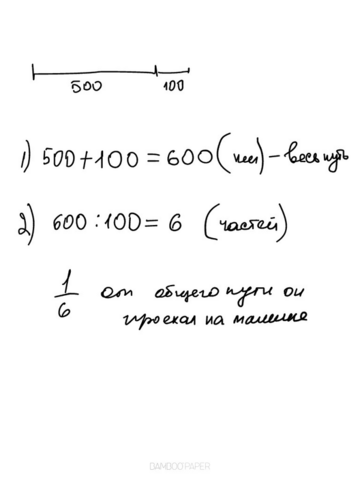 500 100
1) 500+100=600(км)-весь путь
2) 600:100=6 (частей)
1/6 от общего пути он
проехал на машине